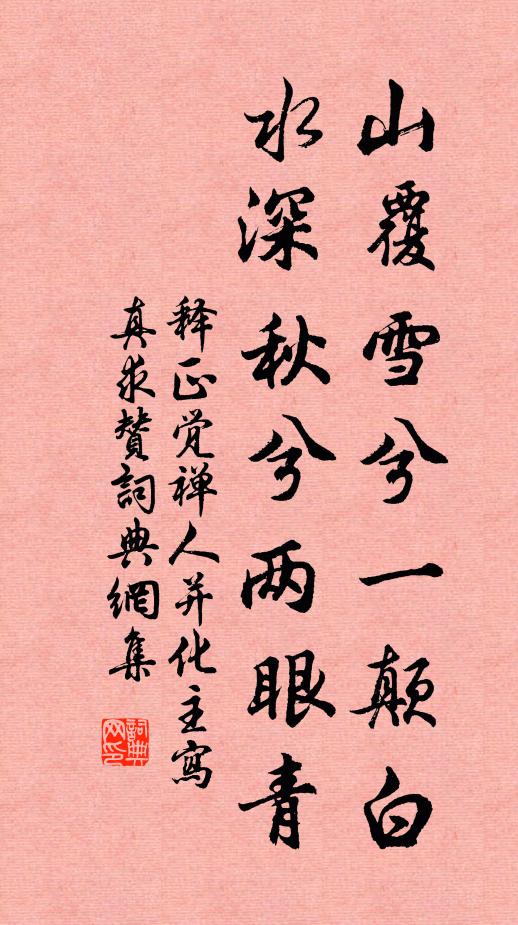 山覆雪兮一颠白
水深秋兮两眼青
释正觉禅人并化主寫
真求赞詞典網集
詞典网印